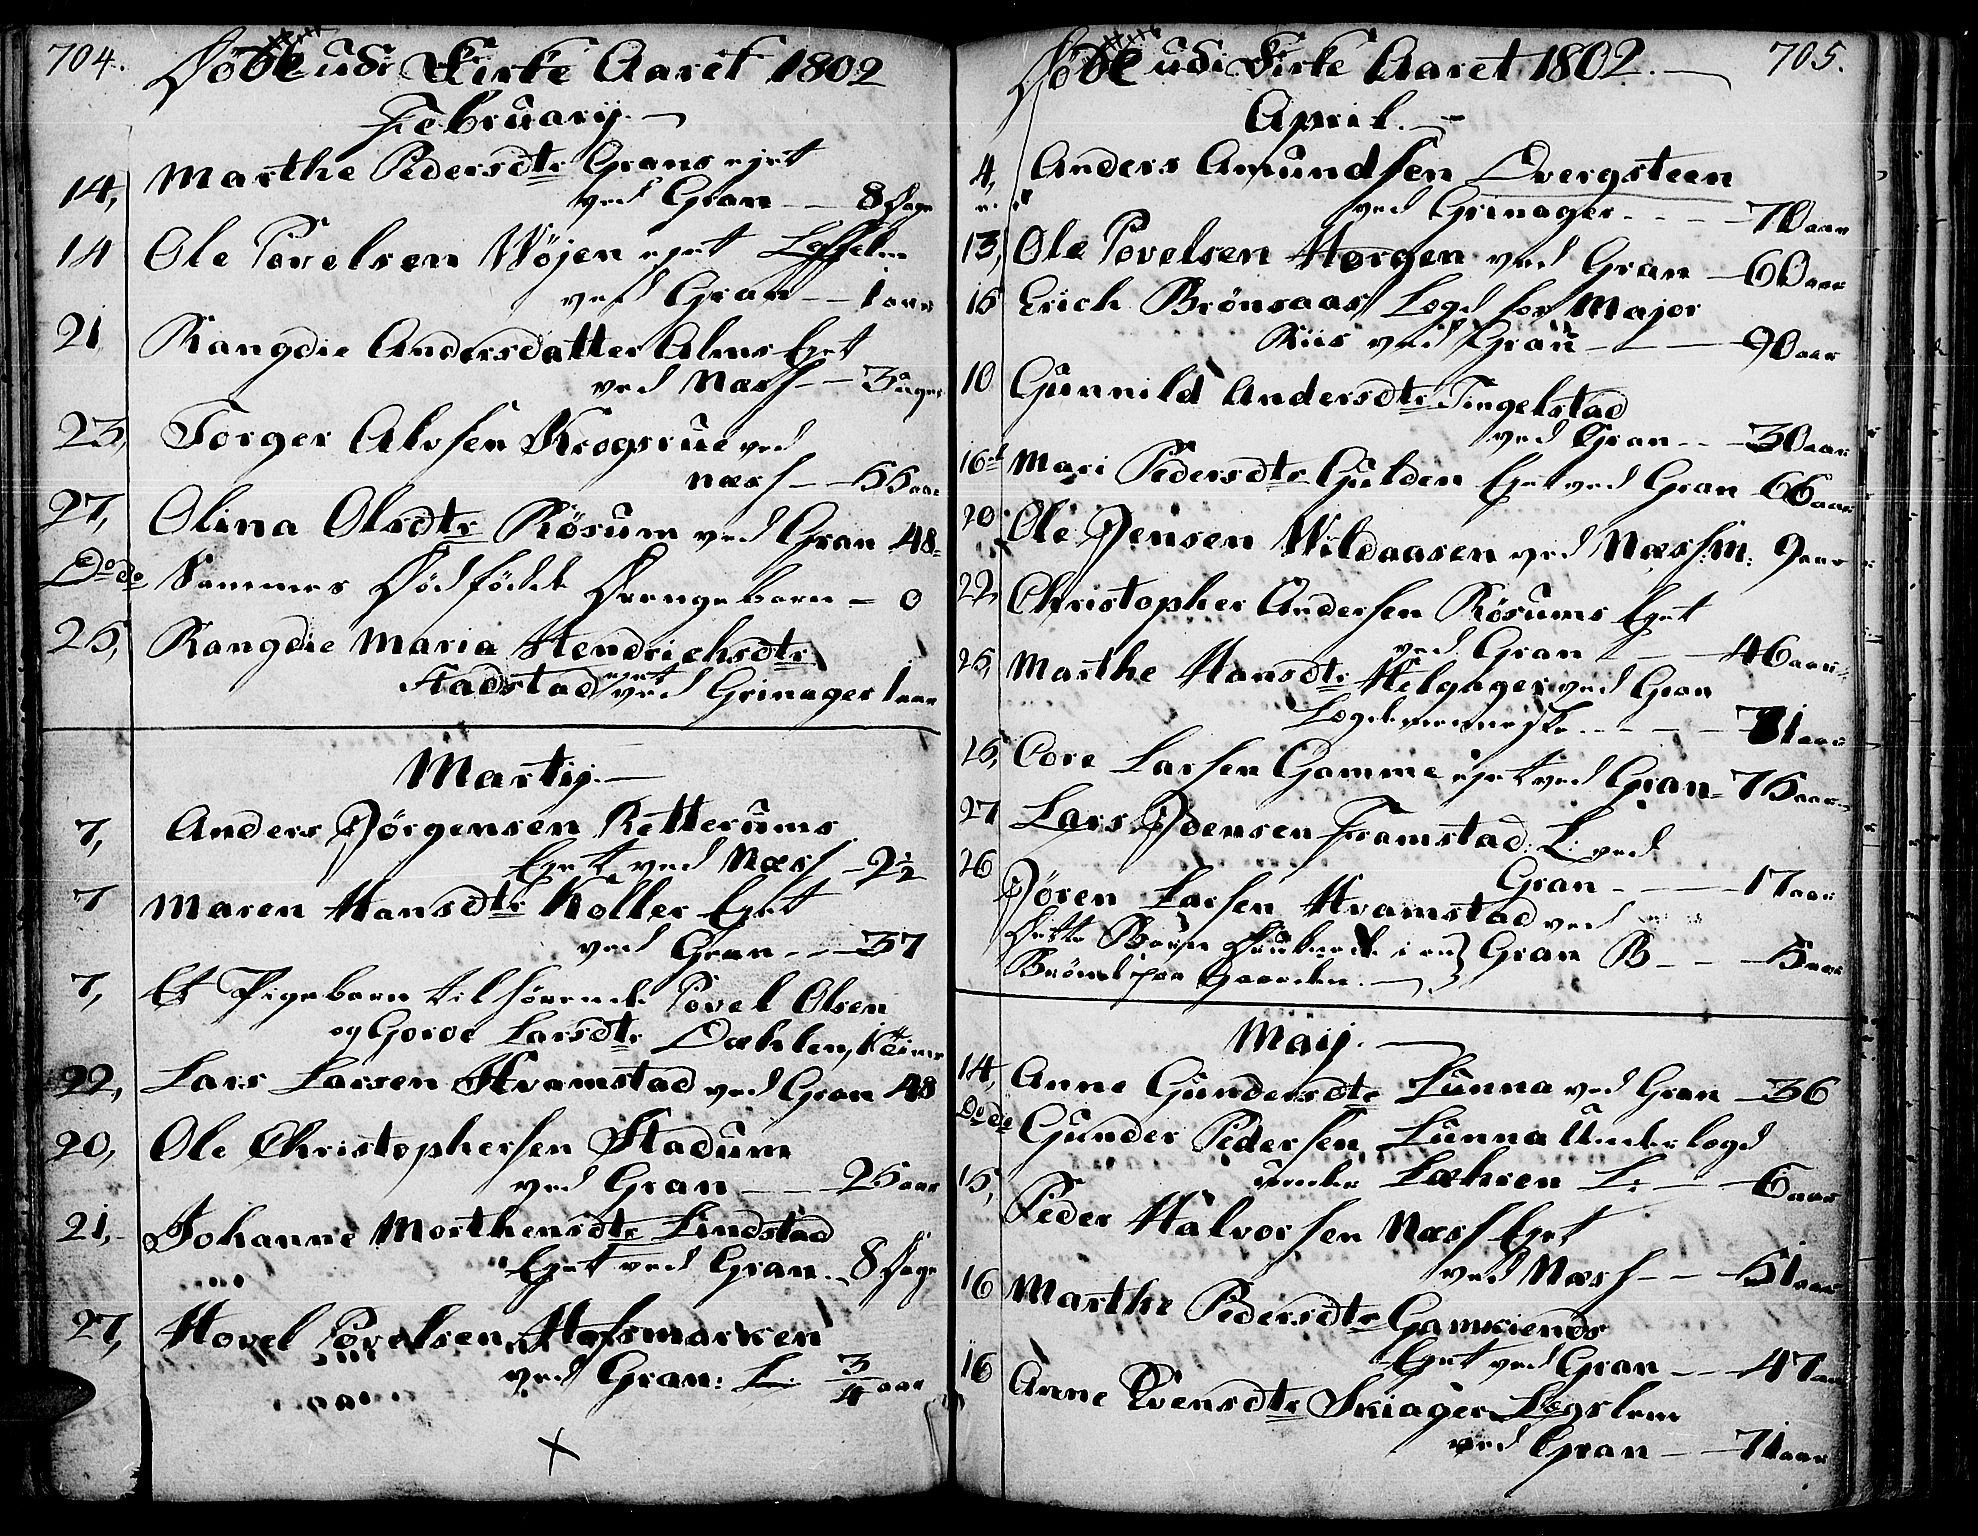 704.
Døde udi Kirke Aaret 1802
Februarij.
14, Marthe Pedersdtr Grans ejet
ved Gran — 8 Dage
14 Ole Povelsen Wøjen ejet
ved Gran — 1 aar
21 Rangdie Andersdatter Alms Eyet
ved Næss — 3 uger
23, Torger Alvsen Krogsrue ved
Næss — 55 aar
27, Olina Olsdtr Røsum ved Gran 48
Do do Sammes Dødfødde Drengebarn — 0
25, Rangdie Maria Hendrichsdtr
Hadstad ejet ved Grinager 1 aar
Martij.
7, Anders Jørgensen Retterums
Eyet ved Næss — 2½
7 Maren Hansdtr Koller Eyet
ved Gran — 37
7, Et Pigebarn tilhørende Povel Olsen
og Goroe Larsdtr Dæhlen,
22, Lars Larsen Hvamstad ved Gran 48
20, Ole Christophersen Stadum
ved Gran — 25 aar
21, Johanne Morthensdtr Lindstad
Eyet ved Gran. 8 Dage
27, Hovel Povelsen Hofsmarken
ved Gran: L: 3/4 aar
705.
Døde udi Kirke Aaret 1802.
April.
4, Anders Amundsen Dvergsteen
ved Grinager — 70 aar
13, Ole Povelsen Horgen ved Gran — 60 aar
15 Erich Brønsaas Legd for Major
Riis ved Gran — 90 aar
10 Gunnild Andersdtr Tingelstad
ved Gran — 30 aar
16 Mari Pedersdtr Gulden Eyet ved Gran 66 aar
20 Ole Jensen Wildaasen ved Næss m: 9 aar
22, Christopher Andersen Røsums Eyet
ved Gran — 46 aar
25, Marthe Hansdtr Helgager ved Gran
Legdemenneske — 81 aar
25, Core Larsen Gamme ejet ved Gran 75 aar
27 Lars Jdensen Framstad L: ved
Gran — 17 aar
26 Jören Larsen Hvamstad ved
Dette Barn Druknede i en } Gran B — 5 aar
Brønd paa Gaarden.
Maij.
14, Anne Gundersdtr Lunna ved Gran — 36
Do do Gunder Pedersen Lunna Underlegd
under Læhren L: — 6 aar
15, Peder Halvorsen Næss Eyet
ved Næss — 51 aar
16 Marthe Pedersdtr Gamkiends
Eyet ved Gran — 47 aar
16 Anne Evensdtr Skiager Legslem
ved Gran — 71 aar